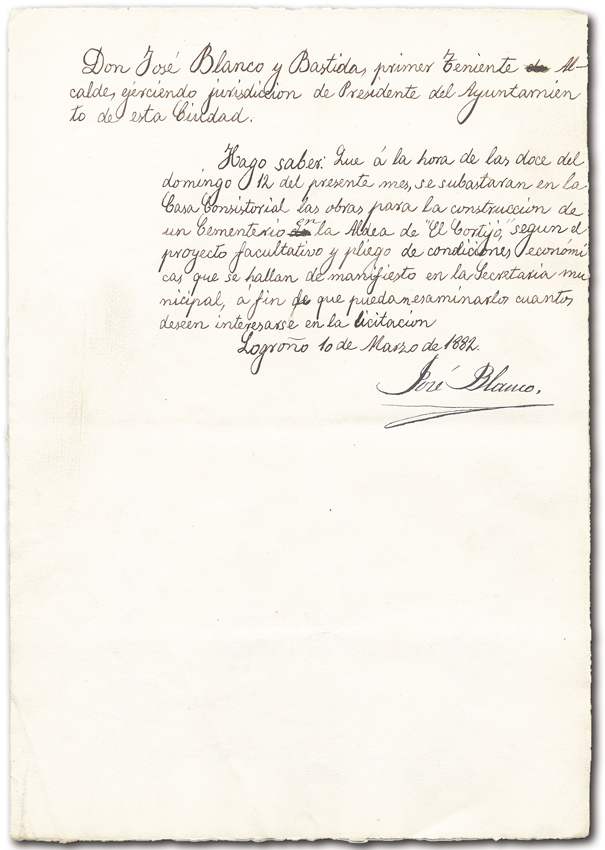 Don José Blanco y Bastida, primer Teniente de Al-
calde, ejerciendo jurisdiccion de Presidente del Ayuntamien
to de esta Ciudad.
Hago saber: Que á la hora de las doce del
domingo 12 del presente mes, se subastaran en la
Casa Consistorial las obras para la construccion de
un Cementerio en la Aldea de "El Cortijo," segun el
proyecto facultativo y pliego de condiciones económi
cas que se hallan de manifiesto en la Secretaria mu
nicipal, á fin de que puedan esaminarlos cuantos
deseen interesarse en la licitacion
Logroño 10 de Marzo de 1882.
José Blanco.